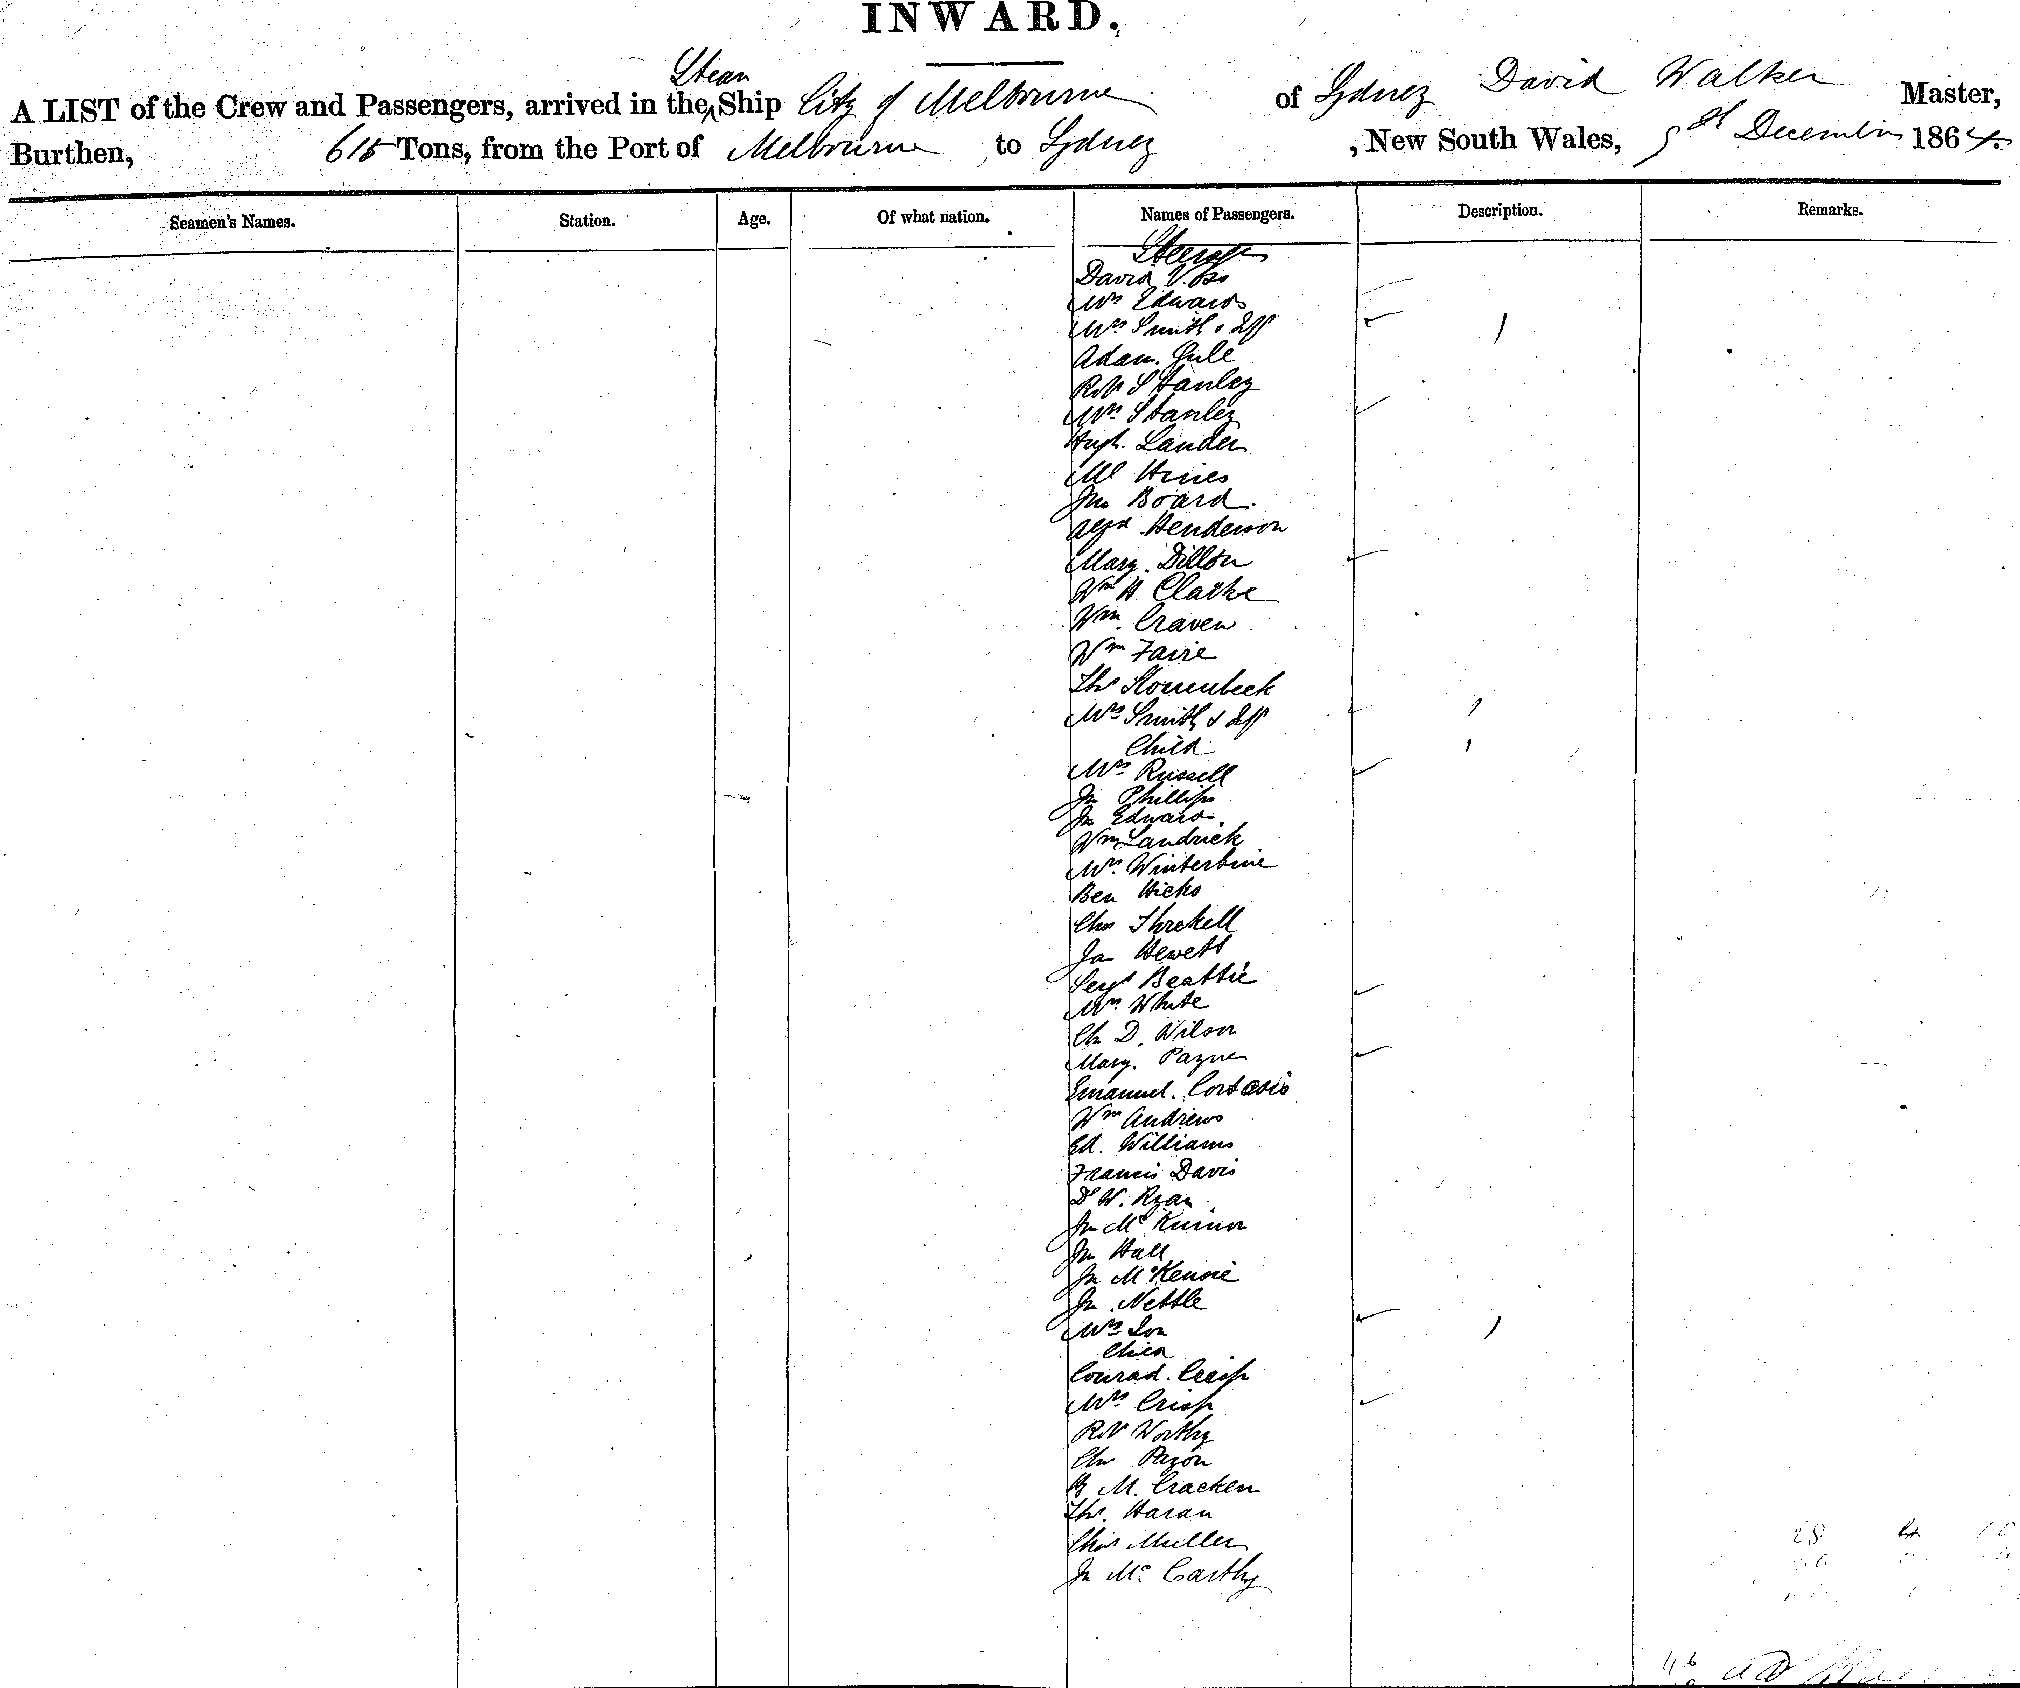 INWARD.
A LIST of the Crew and Passengers, arrived in the Steam Ship City of Melbourne of Sydney David Walker Master,
Burthen, 615 Tons, from the Port of Melbourne to Sydney, New South Wales, 5th December 1864.
Seamen's Names. Station. Age. Of what nation. Names of Passengers. Description. Remarks.
Steerage
David Voss
Mrs Edwards
Mrs Smith &
Adam
Robt Stanley
Mrs Stanley
Hugh Lander
Hines
Jno Board
Alexd Henderson
Mary Dillon
Wm H Clarke
Wm Craven
Wm Faire
Thos
Mrs Smith &
Child
Mrs Russell
Jn Phillips
Jn Edwards
Wm Landrick
Winterbine
Ben Hicks
Chas Threkell
Jas Hewett
Sergt Beattie
Mrs White
Chs D. Wilson
Mary Payne
Emanuel
Wm Andrews
Ed. Williams
Francis Davis
W. Ryan
Jn
Jn Hall
Jn McKenzie
Jn Nettle
Mrs
Child
Conrad Crisp
Mrs Crisp
Robt Worthy
Chs
M. Cracken
Thos. Haran
Chas Muller
Jn McCarthy
28 4 10